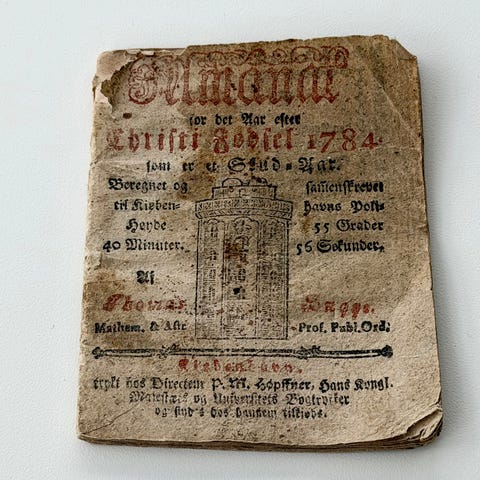 Almanac
for det Aar efter
Christi Fødsel 1784.
som er et Skud-Aar.
Beregnet og samenskrevet
til Kiøben- havns Pols-
Høyde 55 Grader
40 Minuter. 56 Sekunder.
Af
Thomas Bugge.
Mathem. & Astr Prof. Publ. Ord.
Kiøbenhavn.
trykt hos Directeur P. M. Høpffner, Hans Kongl.
Majestæts og Universitets Bogtrykker
og findes hos hannem tilkiøbs.